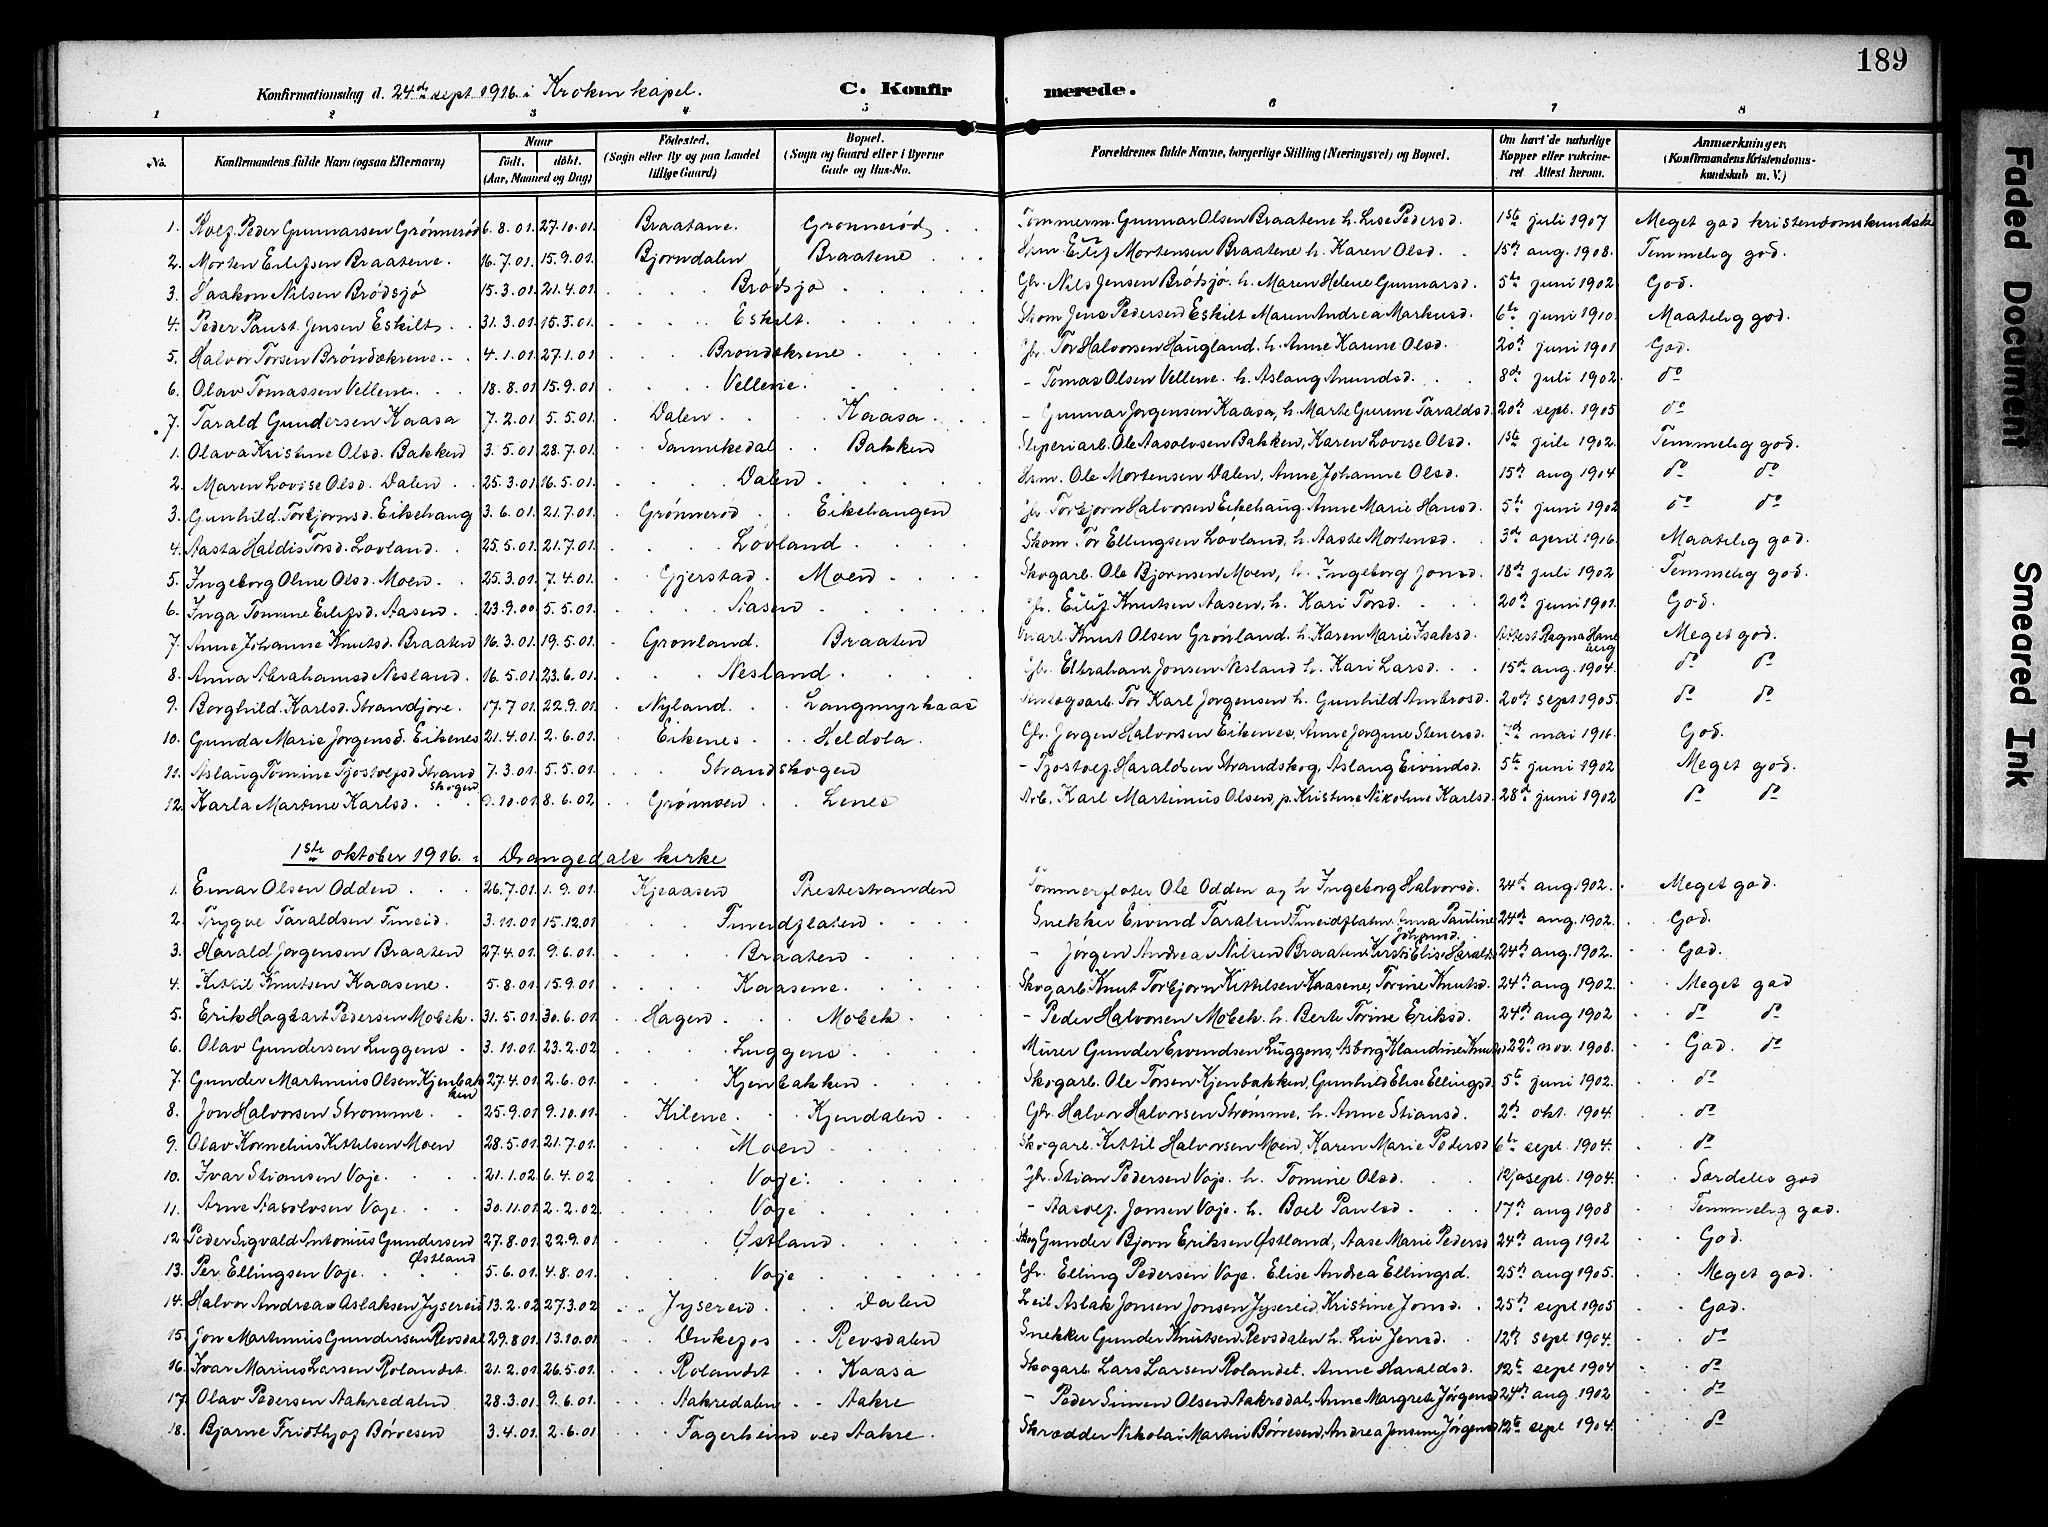 189
Konfirmationsdag d. 24de sept 1916 i Kroken kapel.
C. Konfirmerede.
1 2 3 4 5 6 7 8
No. Konfirmandens fulde Navn (ogsaa Efternavn) Naar født. døbt. (Aar, Maaned og Dag) Fødested. (Sogn eller By og paa Landet tillige Gaard) Bopæl. (Sogn og Gaard eller i Byerne Gade og Hus-No. Forældrenes fulde Navne, borgerlige Stilling (Næringsvei) og Bopæl. Om havt de naturlige Kopper eller vakcineret Attest herom. Anmærkninger. (Konfirmandens Kristendomskundskab m. V.)
1. Peder Gunnarsen Grønnerød 6.8.01. 27.10.01. Braatane. Grønnerød Tømmerm. Gunnar Olsen Braatene h. Lise Pedersd. 1ste juli 1907 Meget god kristendomskundsk
2. Morten Eilifsen Braatene. 16.7.01. 15.9.01. Bjørndalen Braatene Hsm Eilif Mortensen Braatene h. Karen Olsd. 15de aug. 1908. Temmelig god.
3. Haakon Nilsen Brødsjø 15.3.01. 21.4.01. Brødsjø Gbr. Nils Jensen Brødsjø. h. Maren Helene Gunnarsd. 5te juni 1902 God.
4. Peder Paust Jensen Eskilt 31.3.01. 15.5.01. Eskilt. Skom Jens Pedersen Eskilt Maren Andrea Markusd. 6te juni 1910. Maatelig god.
5. Halvor Torsen Brøndskrene 4.1.01. 27.1.01. Brøndskrene Gbr. Tor Halvorsen Haugland. h. Anne Karine Olsd. 20de juni 1901 God.
6. Olav Tomassen Vellene. 18.8.01. 15.9.01. Vellene. - Tomas Olsen Vellene. h. Aslaug Anundsd. 8de juli 1902. do
7. Tarald Gundersen Kaasa 7.2.01. 5.5.01. Dalen Kaasa - Gunnar Jørgensen Kaasa, h. Marte Gurine Taraldsd. 20de sept. 1905 do
1. Olava Kristine Olsd. Bakken 3.5.01 28.7.01. Sannikedal Bakken Sliperiarb. Ole Aasolvsen Bakken, Karen Lovise Olsd. 1ste juli 1902. Temmelig god.
2. Maren Lovise Olsd. Dalen 25.3.01 16.5.01. Dalen Hsm. Ole Mortensen Dalen, Anne Johanne Olsd. 15de aug 1904 do do
3. Gunhild Torbjørnsd. Eikehaug 3.6.01. 21.7.01. Grønnerød Eikehaugen Gbr. Torbjørn Halvorsen Eikehaug. Anne Marie Hansd. 5te juni 1902 do do
4. Aasta Haldis Torsd. Lovland. 25.5.01 21.7.01. Lovland Skom Tor Ellingsen Lovland, h. Aaste Mortensd. 3de april 1916. Maatelig god.
5. Ingeborg Oline Olsd. Moen. 25.3.01. 7.4.01. Gjerstad. Moen Skogarb. Ole Bjørnsen Moen, h. Ingeborg Jonsd. 18de juli 1902 Temmelig god.
6. Inga Tomine Eilifsd. Aasen. 23.9.00 5.5.01. Aasen Gbr. Eilif Knutsen Aasen, h. Kari Torsd. 20de juni 1901. God.
7. Anne Johanne Knutsd. Braaten 16.3.01. 19.5.01. Grønland. Braaten Knut Olsen Grønland. h. Karen Marie Isaksd. Attest Ragna Haneberg Meget god.
8. Anna Abrahamsd Nesland. 16.5.01. 23.6.01. Nesland Gbr. Ebraham Jonsen Nesland h. Kari Larsd. 15de aug. 1904. do do
9. Borghild Karlsd. Strandjøre. 17.7.01 22.9.01. Nyland. Langmyrkaas Tor Karl Jørgensen h. Gunhild Ambrosd. 20de sept 1905. do do
10. Gunda Marie Jørgensd. Eikenes 21.4.01. 2.6.01. Eikenes Heldøla. Gbr. Jørgen Halvorsen Eikenes, Anne Jørgine Stenersd. 7de mai 1916. God.
11. Aslaug Tomine Tjostolfsd Strandskogen 7.3.01. 5.5.01. Strandskogen - Tjostolf Haraldsen Strandskog, Aslaug Eivindsd. 5te juni 1902 Meget god.
12. Karla Martine Karlsd. 9.10.01. 8.6.02 Grønnsen Lenes Arb. Karl Martinius Olsen, p. Kristine Nikoline Karlsd. 28de juni 1902 do do
1ste oktober 1916. i Drangedals kirke
1. Einar Olsen Odden 26.7.01 1.9.01. Kjeaasen Prestestranden Tømmerfløter Ole Odden og h. Ingeborg Halvorsd. 24de aug. 1902. Meget god.
2. Trygve Taraldsen Tineid. 3.11.01 15.12.01 Tineidflaten Snekker Eivind Taralsen Tineidflaten. Anna Pauline Johansd. 24de aug. 1902. God.
3. Harald Jørgensen Braaten 27.4.01. 9.6.01. Braaten - Jørgen Andreas Nilsen Braaten, Kirsti Elise Haralds 24de aug. 1902. God.
4. Kittil Knutsen Kaasene. 5.8.01 15.9.01 Kaasene. Skogarb. Knut Torbjørn Kittilsen Kaasene, Torine Knutsd. 24de aug 1902. Meget god
5. Erik Hagbart Pedersen Mobek. 31.5.01. 30.6.01. Hagen Mobek - Peder Halvorsen Mobek h. Berte Torine Eriksd. 24de aug 1902 do do
6. Olav Gundersen Luggens 3.11.01. 23.2.02 Luggens Murer Gunder Eivindsen Luggens, Asborg Klaudine Knuts 22de nov. 1908. God. do
7. Gunder Martinius Olsen Kjenbakken 27.4.01. 2.6.01. Kjenbakken Skogarb. Ole Torsen Kjenbakken, Gunhild Elise Ellingsd. 5te juni 1902. do
8. Jon Halvorsen Strømme. 25.9.01. 9.10.01. Kilene. Kjendalen Gbr. Halvor Halvorsen Strømme, h. Anne Stiansd. 2de okt. 1904. do
9. Olav Kornelius Kittilsen Moen 28.5.01. 21.7.01. Moen Skogarb. Kittil Halvorsen Moen, Karen Marie Pedersd 6te sept. 1904. do
10. Ivar Stiansen Voje. 21.1.02 6.4.02 Voje. Gbr. Stian Pedersen Voje. h. Tomine Olsd. sept. 1904. Særdeles god
11. Arne Aasolvsen Voje. 30.11.01 2.2.02 Voje - Aasolf Jonsen Voje. h. Boel Paulsd. 17de aug 1908 Temmelig god.
12 Peder Sigvald Antonius Gundersen Østland 27.8.01. 22.9.01 Østland Skog Gunder Bjørn Eriksen Østland, Aase Marie Pedersd 24de aug 1902 God.
13. Per Ellingsen Voje. 5.6.01. 4.8.01. Voje Gbr. Elling Pedersen Voje. Elise Andrea Ellingsd. 25de aug 1905. Meget god.
14. Halvor Andreas Aslaksen Jysereid 13.2.02. 27.3.02 Jysereid. Dalen Leil Aslak Jonsen Jonsen Jysereid, Kristine Jonsd. 25de sept 1905 God.
15. Jon Martinius Gundersen Revsdal 29.8.01. 13.10.01 Dukefos Revsdalen Snekker Gunder Knutsen Revsdalen h. Liv Jensd. 12te sept 1904. do
16. Ivar Marius Larsen Rolandet. 21.2.01. 26.5.01. Rolandet Kaasa Skogarb. Lars Larsen Rolandet. Anne Haraldsd. 12te sept 1904 do
17. Olav Pedersen Aakredalen 28.3.01. 9.6.01. Aakredalen Aakre - Peder Simen Olsen Aakredal, Anne Margrete Jørgensd 24de aug 1902 do
18. Bjarne Fridthjof Børvesen 3.4.01. 2.6.01 Fagerheim ved Aakre. Skrædder Nikolai Martin Børvesen, Andrea Jensine Jørgensd 12te sept 1904. do
Faded Document
Smeared Ink